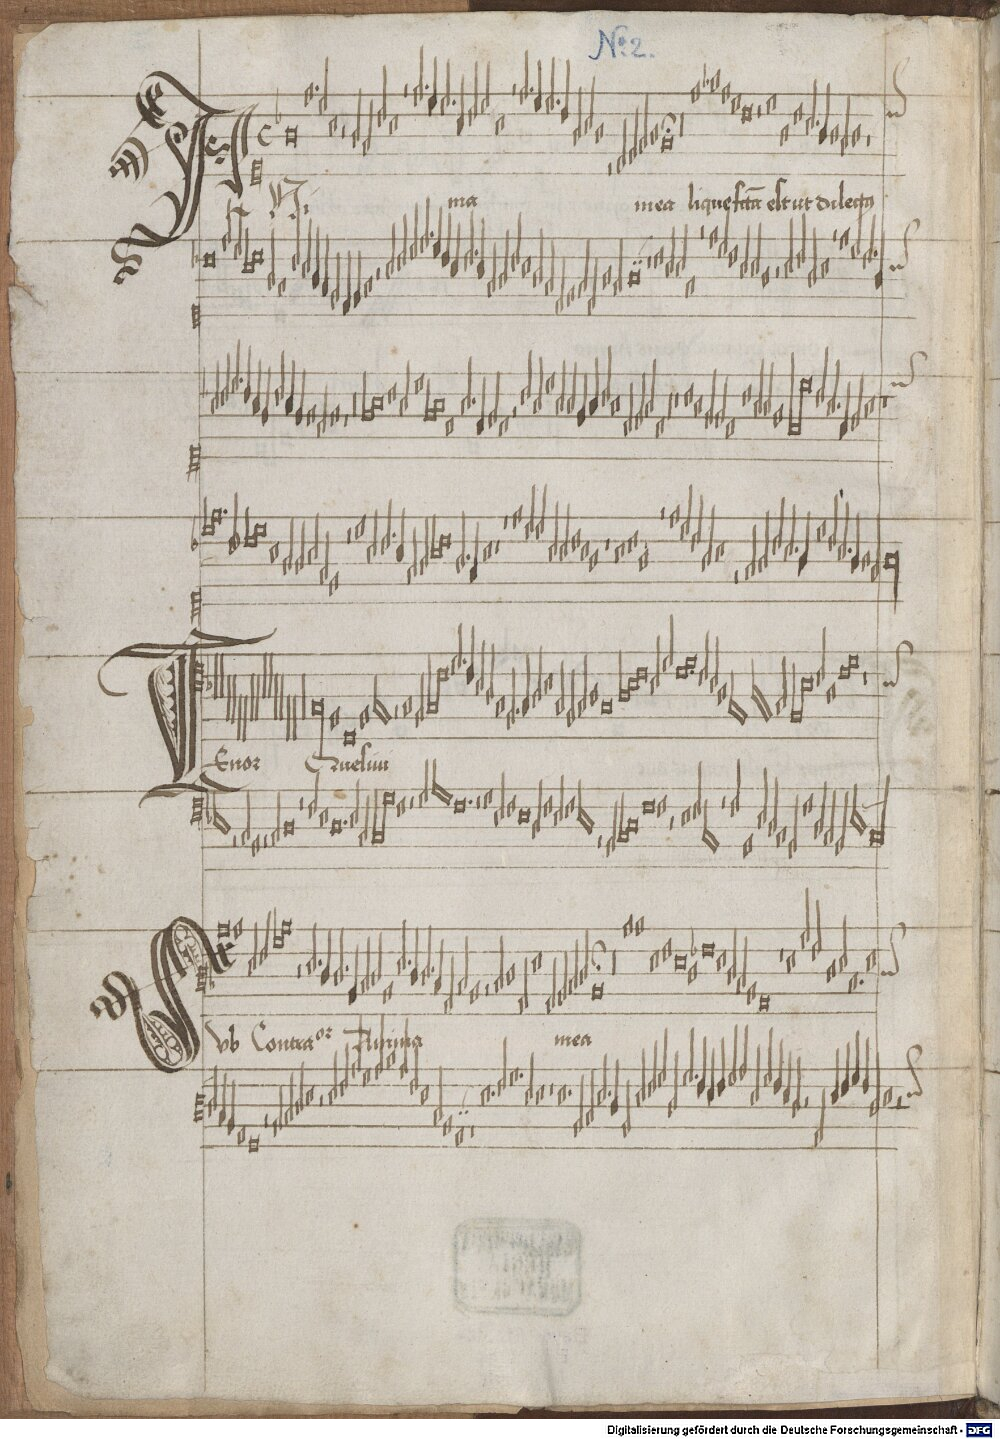 No: 2.
Ni ma mea liquefcta est ut dilectus
Tenor Quesiui
Sub Contraor Anima mea
Digitalisierung gefördert durch die Deutsche Forschungsgemeinschaft - DFG